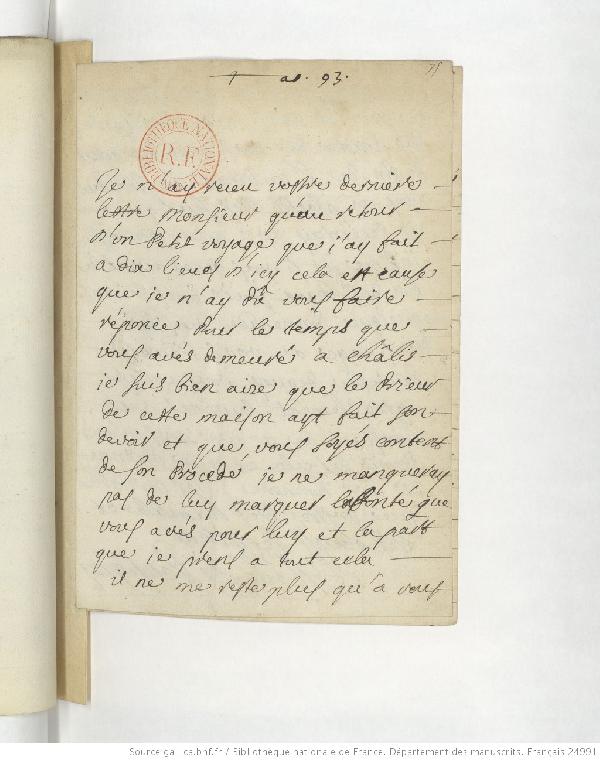 75
+ as. 93.
BIBLIOTHEQUE NATIONALE
R.F.
Je n'ay receu vostre derniere
lettre Monsieur qu'au retour
d'un Petit voyage que j'ay fait
a dix lieues d'icy cela est cause
que je n'ay dû vous faire
réponce Pour le temps que
vous avés demeuré a châlis
je suis bien aise que le Prieur
de cette maison ayt fait son
devoir et que vous soyés content
de son Procedé je ne manqueray
pas de luy marquer la bonté que
vous avés pour luy et la part
que je prens a tout cela
il ne me reste plus qu'a vous
Source gallica.bnf.fr / Bibliothèque nationale de France. Département des manuscrits. Français 24991